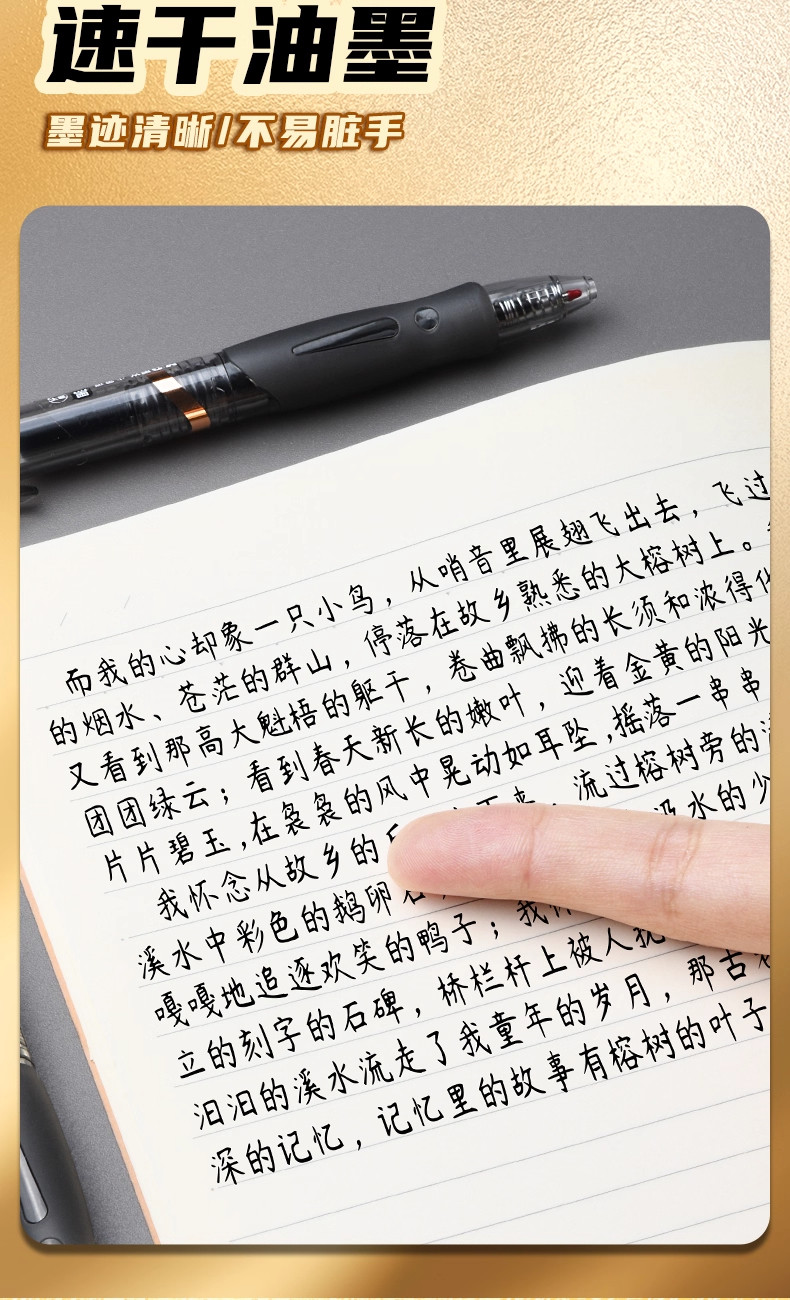 速干油墨
墨迹清晰/不易脏手
黑
而我的心却象一只小鸟，从哨音里展翅飞出去，飞过
的烟水、苍茫的群山，停落在故乡熟悉的大榕树上。
又看到那高大魁梧的躯干，卷曲飘拂的长须和浓得化
团团绿云；看到春天新长的嫩叶，迎着金黄的阳光
片片碧玉，在袅袅的风中晃动如耳坠，摇落一串串
我怀念从故乡的 流过榕树旁的清
溪水中彩色的鹅卵石 汲水的少
嘎嘎地追逐欢笑的鸭子；我怀
立的刻字的石碑，桥栏杆上被人抚
汩汩的溪水流走了我童年的岁月，那古
深的记忆，记忆里的故事有榕树的叶子